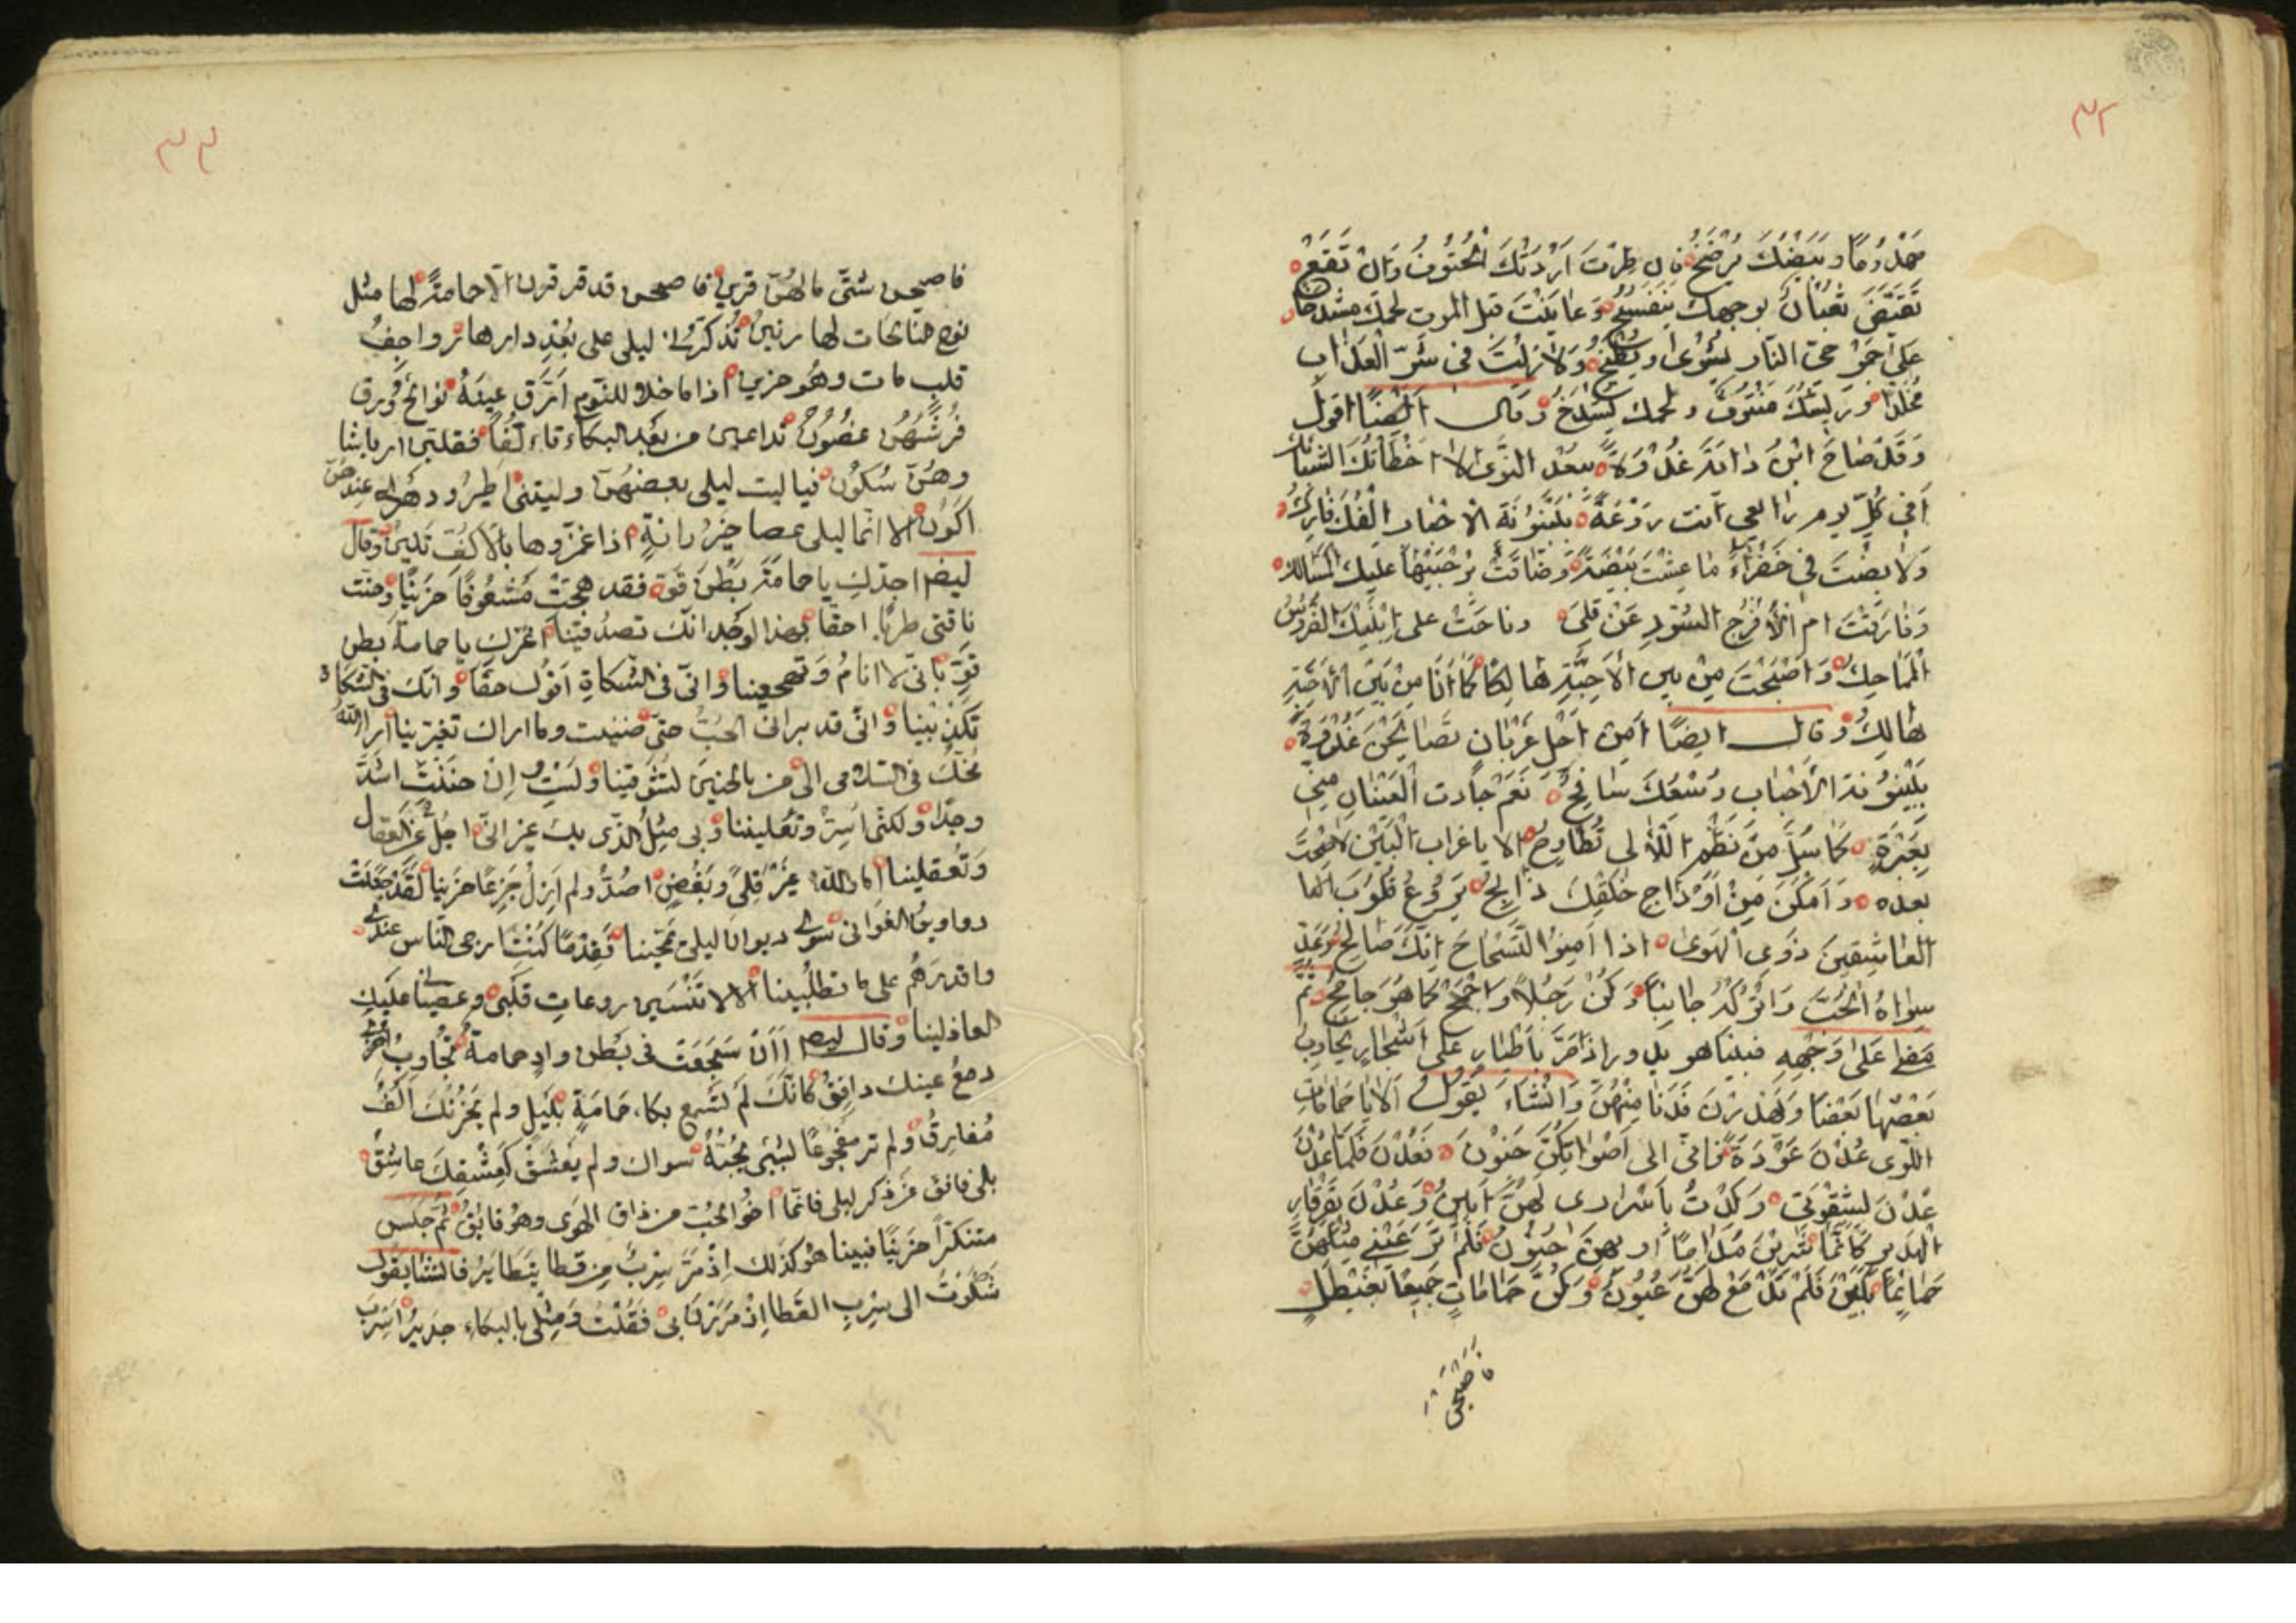 ٣٢
مهدوما وبيضك يرضخ فان طرت اردتك الحتوف وان تقع
تقيض ثعبان بوجهك ينفخ وعاينت قبل الموت لحمك مشدخا
على حر جمر النار يشوى ويطبخ ولا زلت في شر العذاب
مخلدا وريشك منتوف ولحمك يشدخ وقال ايضا اقول
وقد صاح ابن داية غدوة ببعد النوى لا اخطأتك الشبائك
افي كل يوم رائعي انت روعة ببينونة الاحباب الفك فارك
ولا بضت في خضراء ما عشت بيضة وضاقت برحبيها عليك المسالك
وفارقت ام الافرخ السود عن قلى وناحت على ابنيك الفروس
المماحك واصبحت من بين الاحبة هالكا كما انا من بين الاحبة
هالك وقال ايضا امن اجل غربان تصايحن غدوة
ببينونة الاحباب دمعك سافح نعم جادت العينان مني
بعبرة كما سل من نظم اللآلي تطارح الا يا غراب البين لا صحت
بعده وامكن من اوداج حلقك ذابح يروع قلوب
العاشقين ذوي الهوى اذا امنوا التشحاج انك صالح وعد
سواء الحب واتركه جانبا وكن رجلا واجمح كما هو جامح ثم
مضى على وجهه فبينما هو يدور اذ مر باطيار على اشجار يجاوب
بعضها بعضا ويهدرن فدنا منهن وانشاء يقول الا يا حمامات
اللوى عدن عودة فاني الى اصواتكن حنون فعدن فلما عدن
عدن لشقوتي وكدت باسراري لهن ابين وعدن بقرقار
الهدير كانما شربن مداما او بهن جنون فلم تر عيني مثلهن
حمائما بكين فلم تدمع لهن عيون وكن حمامات جميعا بغيطل
فاصبحن
٣٣
فاصبحن شتى ما لهن قرين فاصبحن قد قرقرن الا حمامة لها مثل
نوح النائحات لها رنين تذكرني ليلى على بعد دارها رواجف
قلب مات وهو حزين اذا ما خلا للنوم ارق عينه نوائح ورق
فرشهن غصون تداعين من بعد البكاء تالفا فقلبن ارياشا
وهن سكون فيا ليت ليلى بعضهن وليتني اطير ودهري عندهن
اكون الا انما ليلى عصا خيزرانة اذا غمزوها بالاكف تلين وقال
ايضا اجدك يا حمامة بطن قو فقد هيجت مشغوفا حزينا وحنت
ناقتي طربا احقا بهذا الوجد انك تصدقينا اغرك يا حمامة بطن
قو باني لا انام وتهجعينا واني في الشكاة اقول حقا وانك في الشكاة
تكذبينا واني قد براني الحب حتى ضنيت وما اراك تغيرينا ارار الله
مخك في السلامى الى من بالحنين تشوقينا ولست وان حننت اشد
وجدا ولكني اسر وتعلنينا وبي مثل الذي بك غير اني اجل عن العقال
وتعقلينا اما والله غير قلى وبغض اصد ولم ازل جزعا حزينا لقد جعلت
دواوين الغواني سوى ديوان ليلى تمحينا فقدما كنت ارجى الناس عندي
واقدرهم على ما تطلبينا الا لا تنسين روعات قلبي وعصياني عليك
العاذلينا وقال ايضا أان سجعت في بطن واد حمامة تجاوب اخرى
دمع عينك دافق كانك لم تسمع بكاء حمامة بليل ولم يحزنك الف
مفارق ولم تر مفجوعا بشيء يحبه سواك ولم يعشق كعشقك عاشق
بلى فافق عن ذكر ليلى فانما اخو الحب من ذاق الهوى وهو فائق ثم جلس
متنكرا حزينا فبينا هو كذلك اذ مر سرب من قطا يتطاير فانشا يقول
شكوت الى سرب القطا اذ مررن بي فقلت ومثلي بالبكاء جدير اسرب